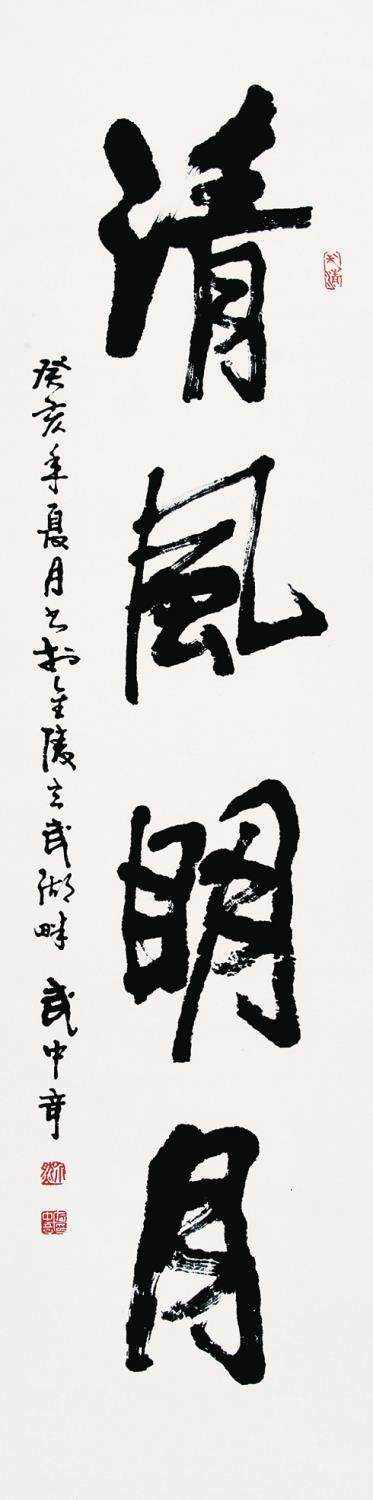 清風明月
癸亥年夏月書於金陵玄武湖畔 武中奇